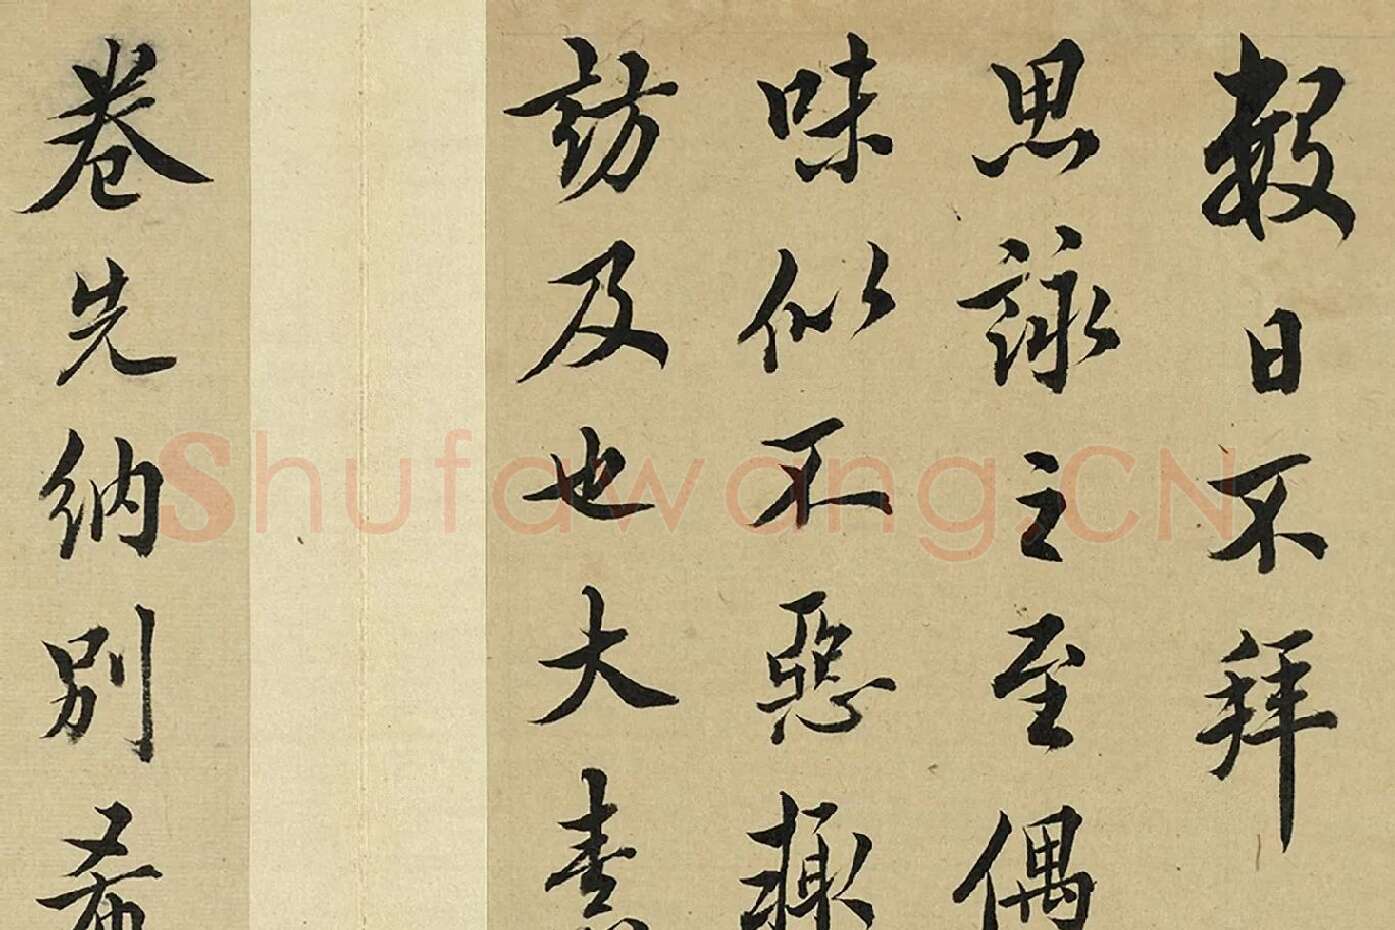 數日不拜
思詠之至偶
味似不惡
訪及也大
卷先納別希
Shufawang.CN